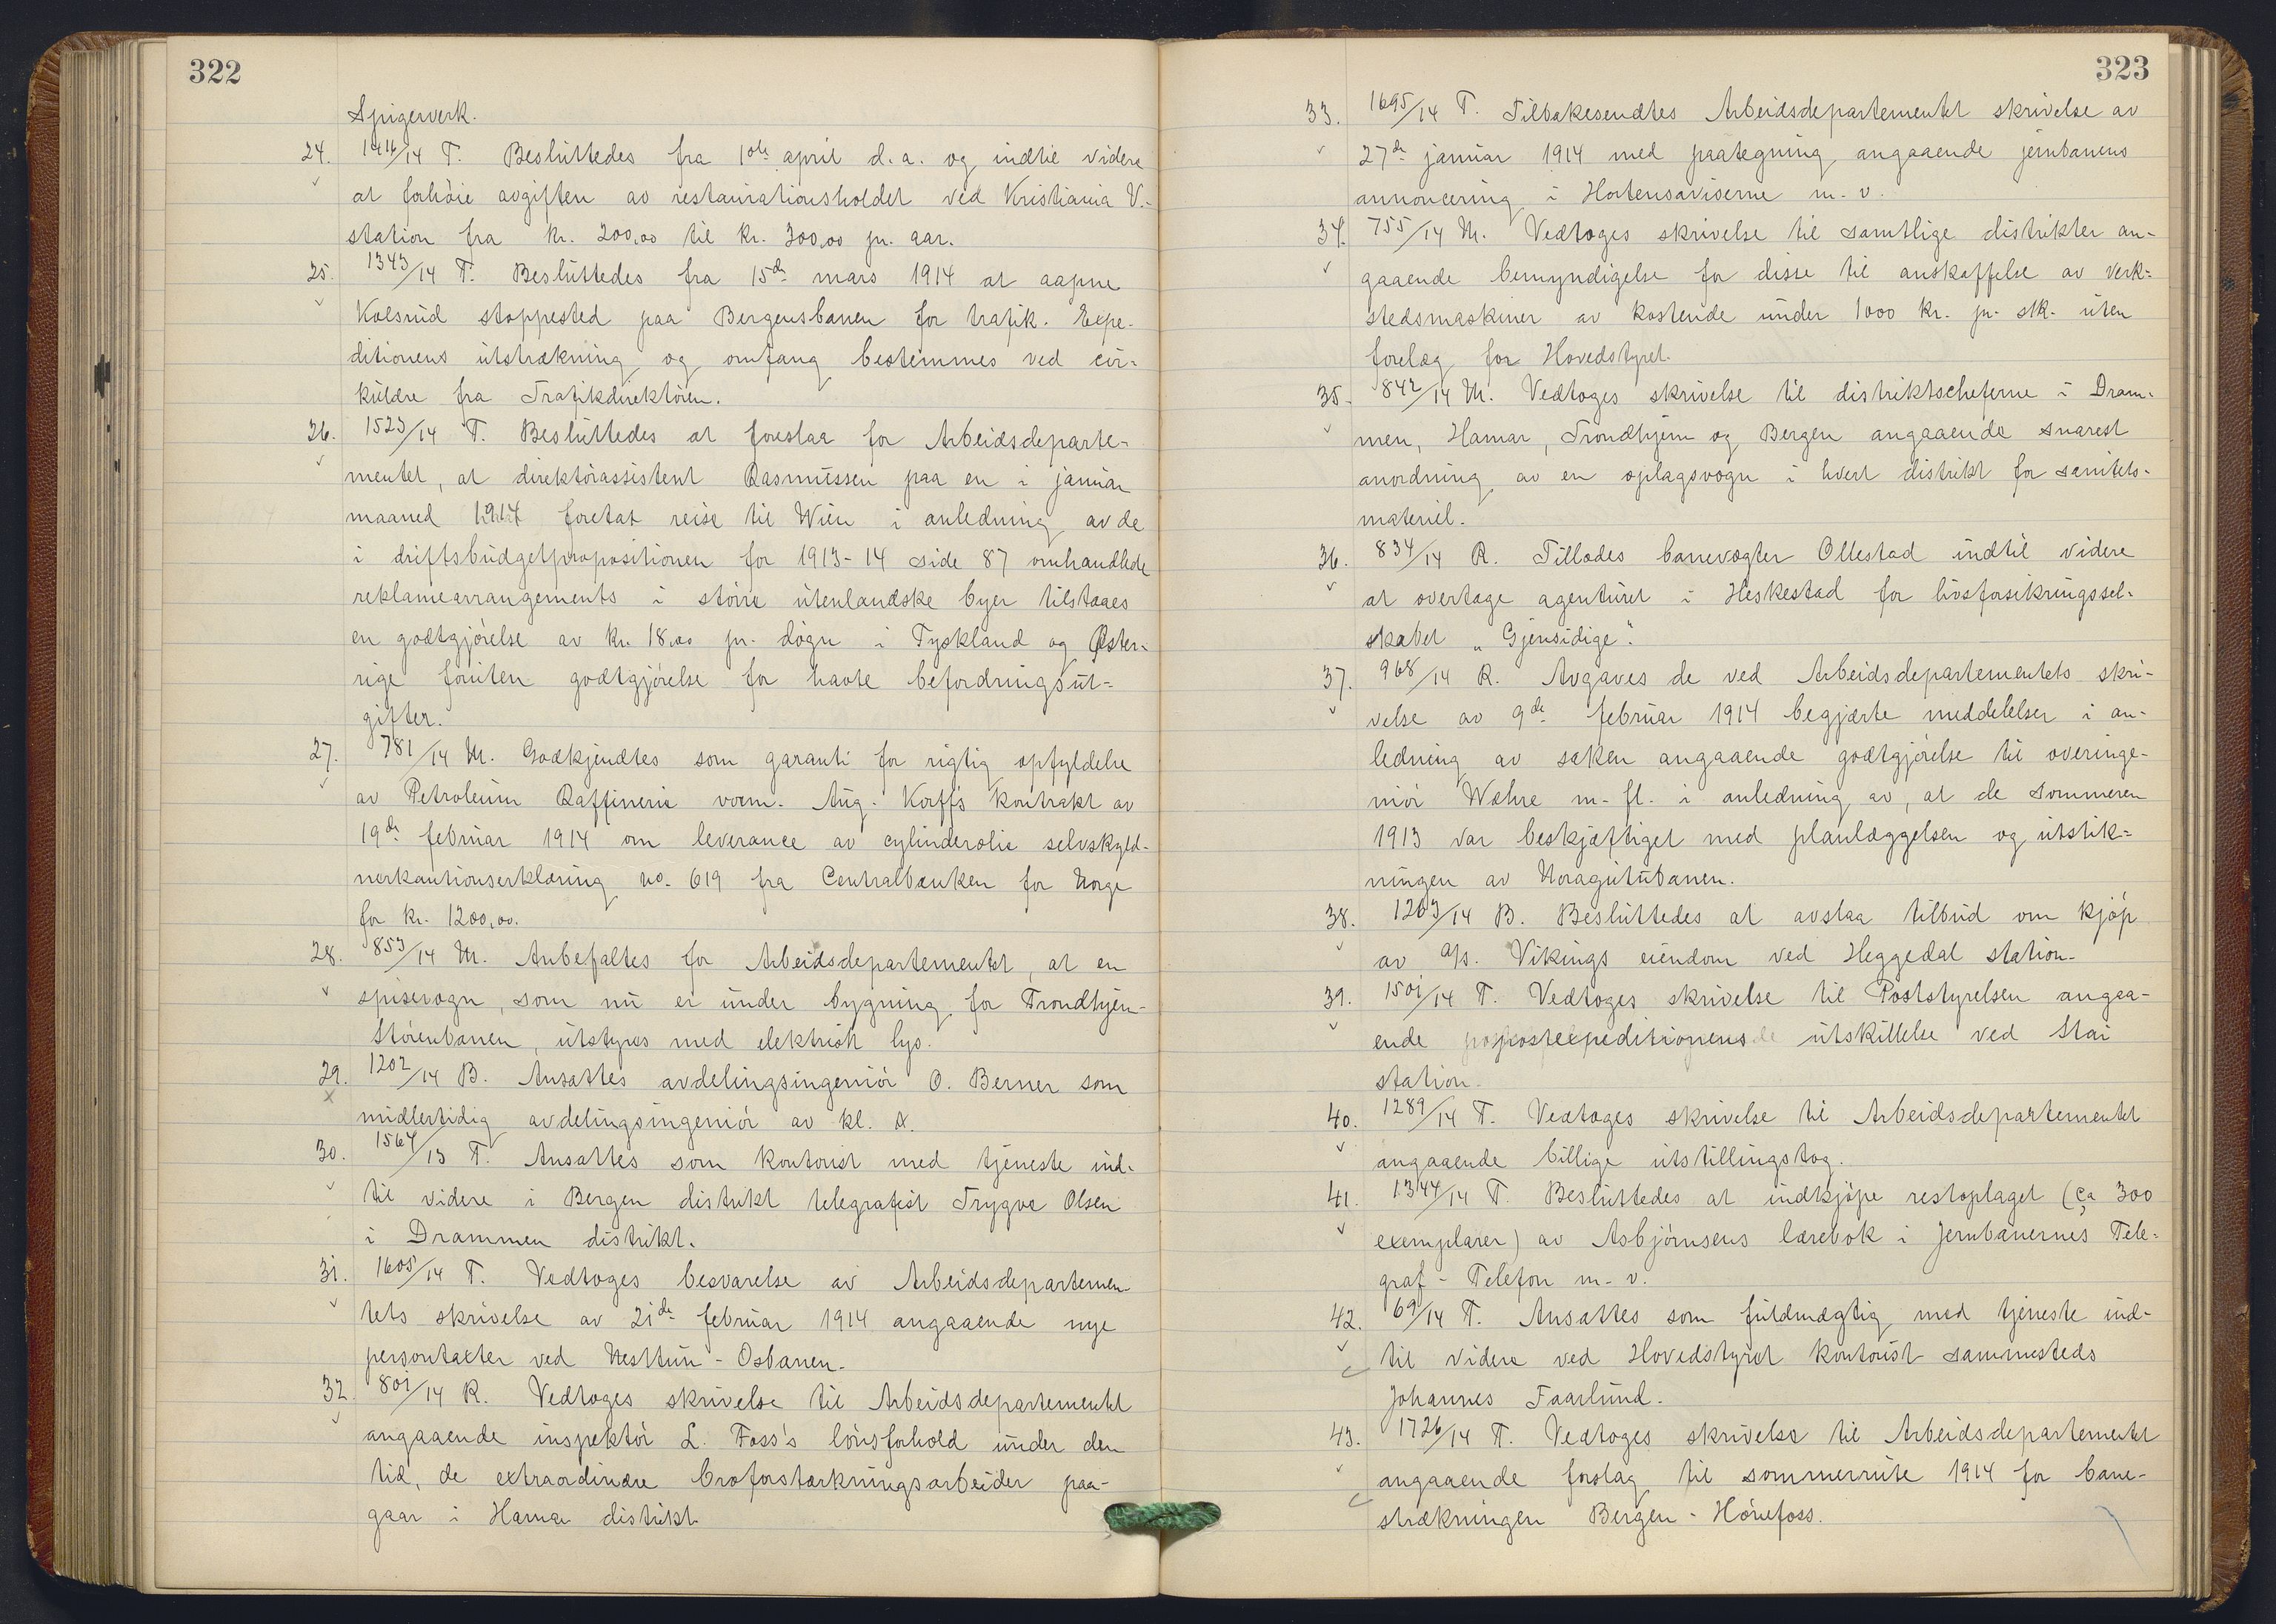 322
Spigerverk.
24. 1416/14 T. Besluttedes fra 1ste april d.a. og indtil videre
at forhöie avgiften av restaurationsholdet ved Kristiania V.-
station fra kr. 200,00 til kr. 300,00 pr. aar.
25. 1343/14 T. Besluttedes fra 15de mars 1914 at aapne
Kolsrud stoppested paa Bergensbanen for trafik. Expe-
ditionens utstrækning og omfang bestemmes ved cir-
kulære fra Trafikdirektören.
26. 1523/14 T. Besluttedes at foreslaa for Arbeidsdeparte-
mentet, at direktörassistent Rasmussen paa en i januar
maaned 1914 foretat reise til Wien i anledning av de
i driftsbudgetpropositionen for 1913-14 side 87 omhandlede
reklamearrangements i större utenlandske byer tilstaaes
en godtgjörelse av kr. 18,00 pr. dögn i Tyskland og Öster-
rige foruten godtgjörelse for havte befordringsut-
gifter.
27. 781/14 M. Godkjendtes som garanti for rigtig opfyldelse
av Petroleum Raffinerie vorm. Aug. Korffs kontrakt av
19de februar 1914 om leverance av cylinderolie selvskyld-
nerkautionserklæring no. 619 fra Centralbanken for Norge
for kr. 1200,00.
28. 853/14 M. Anbefaltes for Arbeidsdepartementet, at en
spisevogn, som nu er under bygning for Trondhjem-
Störenbanen, utstyres med elektrisk lys.
29. 1202/14 B. Ansattes avdelingsingeniör O. Berner som
midlertidig avdelingsingeniör av kl. A.
30. 1564/13 T. Ansattes som kontorist med tjeneste ind-
til videre i Bergen distrikt telegrafist Trygve Olsen
i Drammen distrikt.
31. 1605/14 T. Vedtoges besvarelse av Arbeidsdepartemen-
tets skrivelse av 21de februar 1914 angaaende nye
persontaxter ved Nesttun-Osbanen.
32. 801/14 R. Vedtoges skrivelse til Arbeidsdepartementet
angaaende inspektör L. Foss's lönsforhold under den
tid, de extraordinære broforstærkningsarbeider paa-
gaar i Hamar distrikt.
323
33. 1695/14 T. Tilbakesendtes Arbeidsdepartementet skrivelse av
27de januar 1914 med paategning angaaende jernbanens
annoncering i Hortensaviserne m.v.
34. 755/14 M. Vedtoges skrivelse til samtlige distrikter an-
gaaende bemyndigelse for disse til anskaffelse av verk-
stedsmaskiner av kostende under 1000 kr. pr. stk. uten
forelæg for Hovedstyret.
35. 842/14 M. Vedtoges skrivelse til distriktscheferne i Dram-
men, Hamar, Trondhjem og Bergen angaaende snarest
anordning av en oplagsvogn i hvert distrikt for sanitets-
materiel.
36. 834/14 R. Tillodes banevogter Ollestad indtil videre
at overtage agenturet i Heskestad for livsforsikringssel-
skabet „Gjensidige".
37. 968/14 R. Avgaves de ved Arbeidsdepartementets skri-
velse av 9de februar 1914 begjærte meddelelser i an-
ledning av saken angaaende godtgjörelse til overinge-
niör Wæhre m.fl. i anledning av, at de sommeren
1913 var beskjæftiget med planlæggelsen og utstik-
ningen av Noragutubanen.
38. 1263/14 B. Besluttedes at avslaa tilbud om kjöp
av A/s. Vikings eiendom ved Heggedal station.
39. 1501/14 T. Vedtoges skrivelse til Poststyrelsen angaa-
ende postexpeditionens utskillelse ved Stai
station.
40. 1289/14 T. Vedtoges skrivelse til Arbeidsdepartementet
angaaende billige utstillingstog.
41. 1344/14 T. Besluttedes at indkjöpe restoplaget (ca 300
exemplarer) av Asbjörnsens lærebok i Jernbanernes Tele-
graf- Telefon m.v.
42. 69/14 T. Ansattes som fuldmægtig med tjeneste ind-
til videre ved Hovedstyret kontorist sammesteds
Johannes Faarlund.
43. 1726/14 T. Vedtoges skrivelse til Arbeidsdepartementet
angaaende forslag til sommerrute 1914 for bane-
strækningen Bergen-Hönefoss.